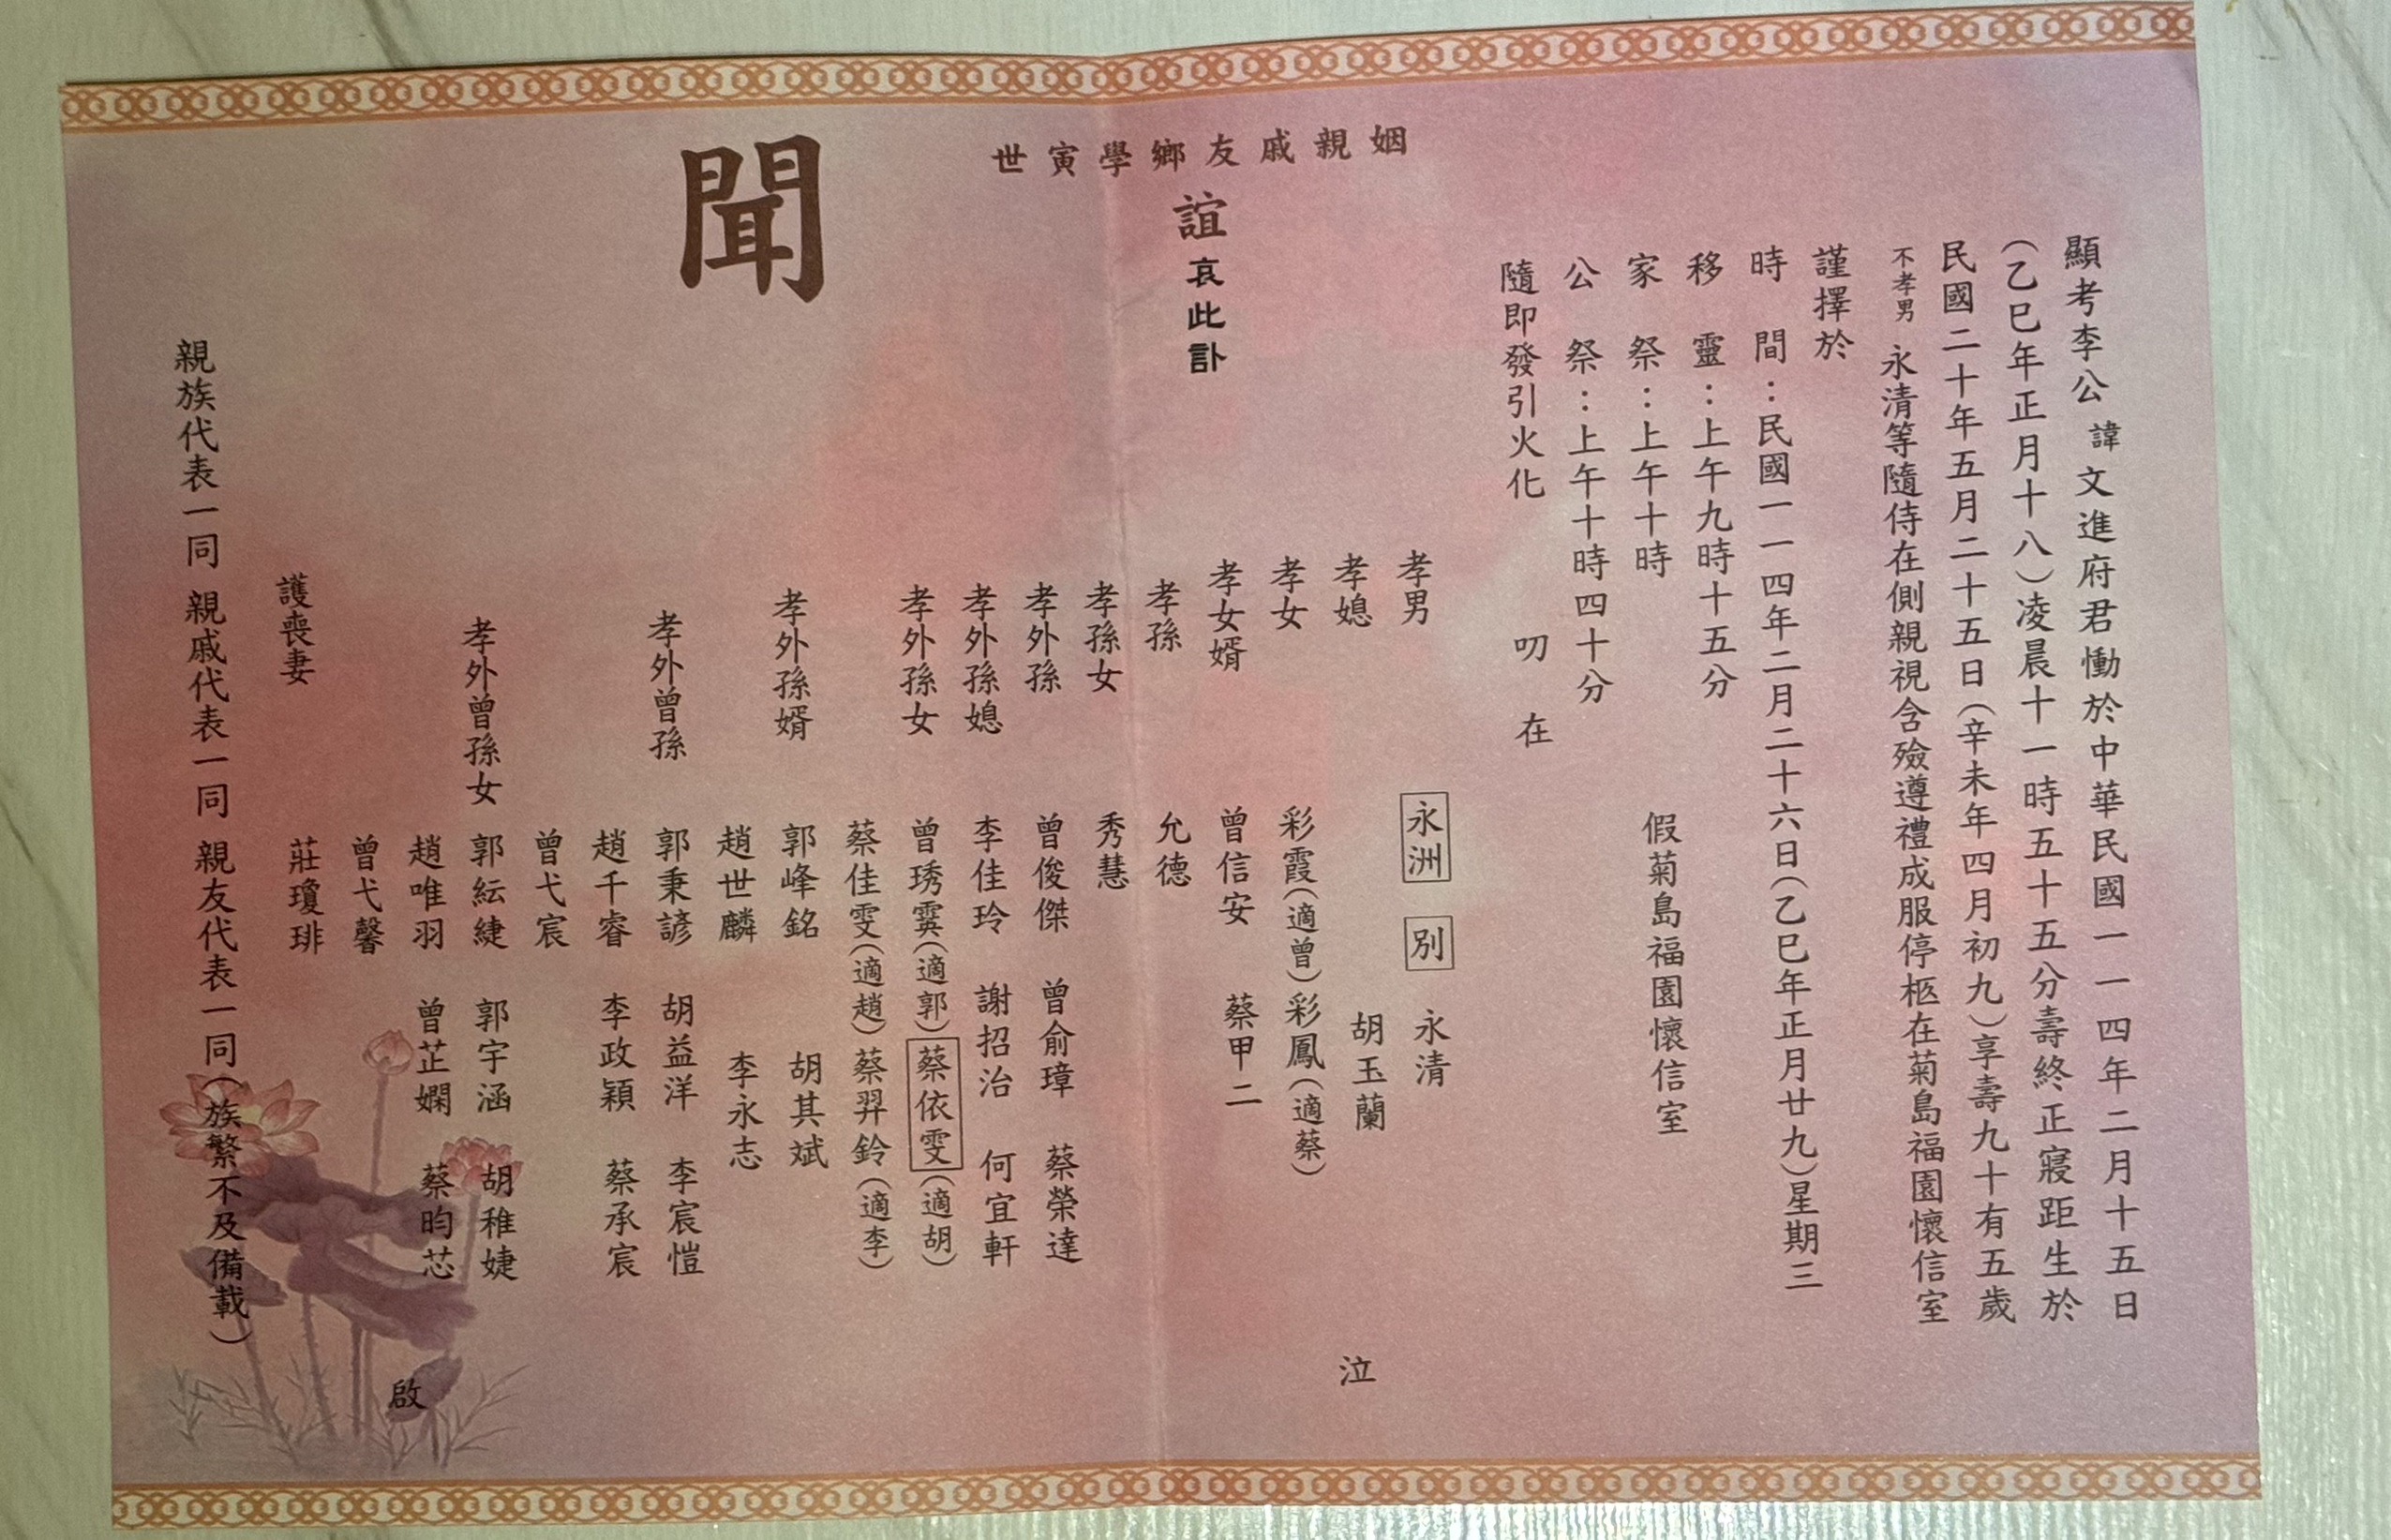 顯考李公 諱 文進府君慟於中華民國一一四年二月十五日
(乙巳年正月十八)凌晨十一時五十五分壽終正寢距生於
民國二十年五月二十五日(辛未年四月初九)享壽九十有五歲
不孝男 永清等隨侍在側親視含殮遵禮成服停柩在菊島福園懷信室
謹擇於
時 間:民國一一四年二月二十六日(乙巳年正月廿九)星期三
移 靈:上午九時十五分
家 祭:上午十時 假菊島福園懷信室
公 祭:上午十時四十分
隨即發引火化 叨 在
姻親戚友鄉學寅世
誼 哀此訃
聞
孝男 永洲 別 永清
孝媳 胡玉蘭 泣
孝女 彩霞(適曾)彩鳳(適蔡)
孝女婿 曾信安 蔡甲二
孝孫 允德
孝孫女 秀慧
孝外孫 曾俊傑 曾俞璋 蔡榮達
孝外孫媳 李佳玲 謝招治 何宜軒
孝外孫女 曾琇霙(適郭)蔡依雯(適胡)
蔡佳雯(適趙)蔡羿鈴(適李)
孝外孫婿 郭峰銘 胡其斌
趙世麟 李永志
孝外曾孫 郭秉諺 胡益洋 李宸愷
趙千睿 李政穎 蔡承宸
曾弋宸
孝外曾孫女 郭紜緁 郭宇涵 胡稚婕
趙唯羽 曾芷嫻 蔡昀芯
曾弋馨 啟
護喪妻 莊瓊琲
親族代表一同 親戚代表一同 親友代表一同(族繁不及備載)